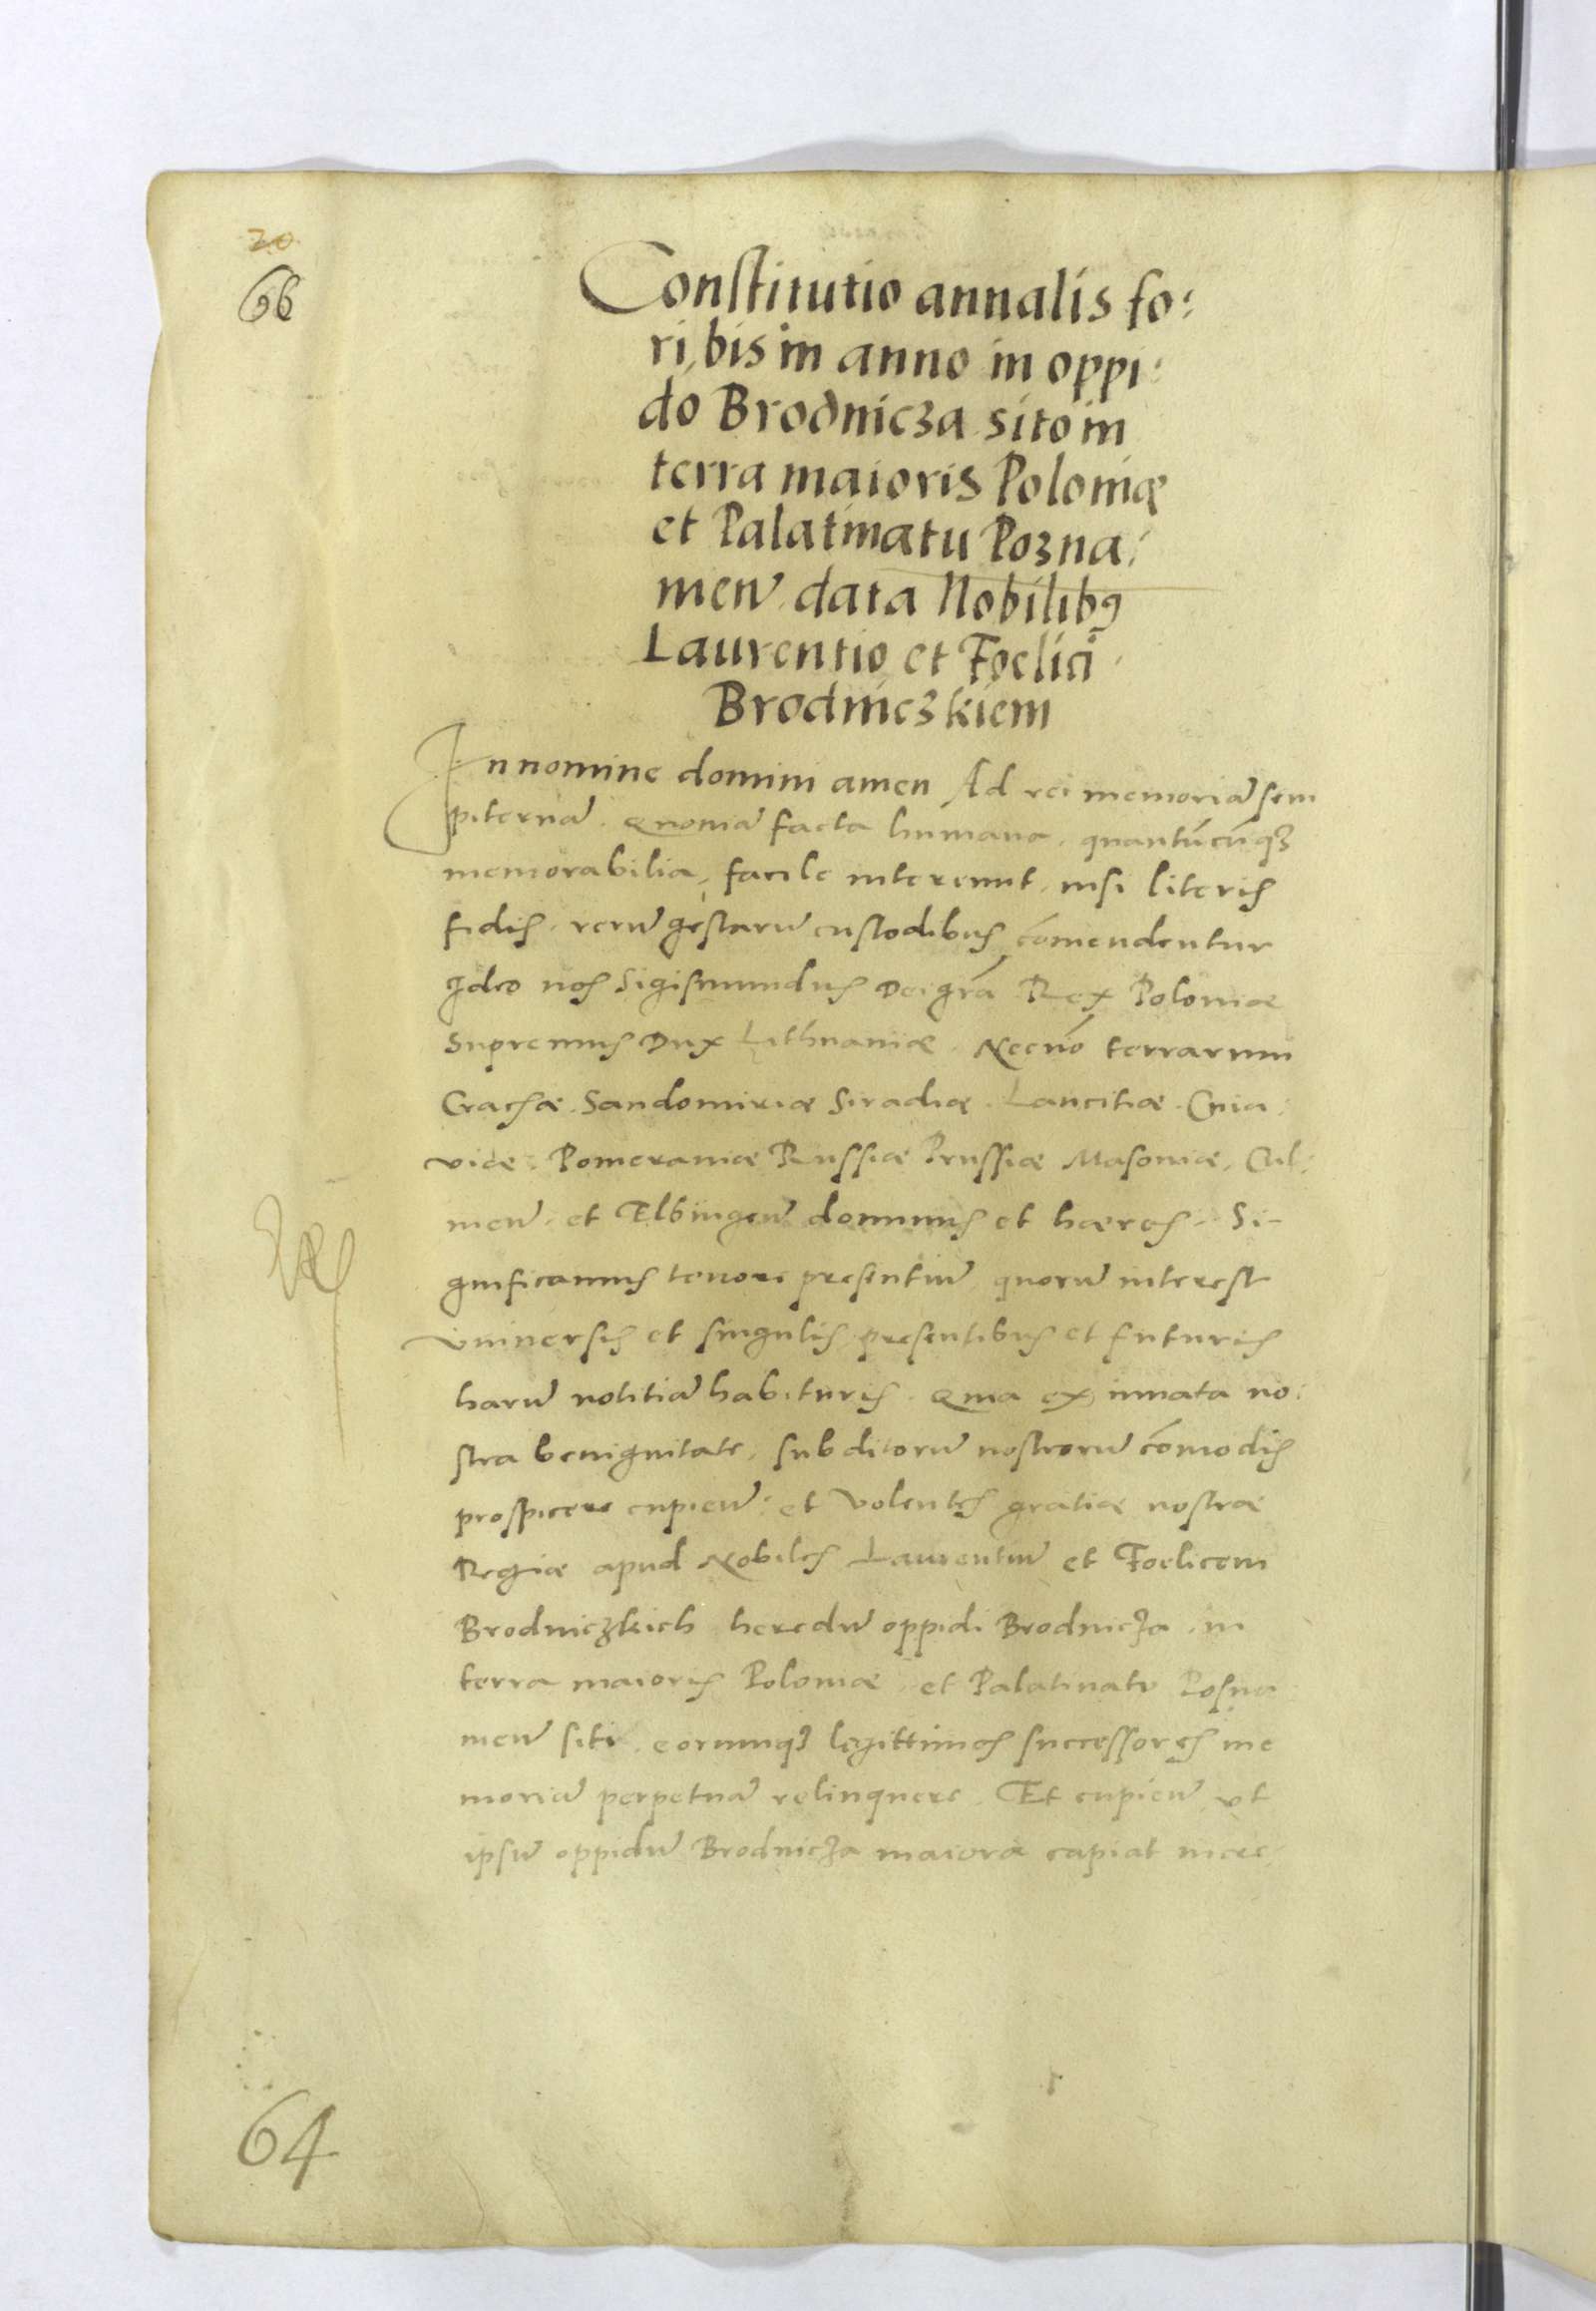 20
66
Constitutio annalis fo:
ri, bis in anno in oppi:
do Brodnicza sito in
terra maioris Poloniæ
et Palatinatu Pozna:
meñ. data Nobilibꝯ
Laurentio et Foelici
Brodniczkiem
In nomine domini amen Ad rei memoriã sem
piternã. Quoniã facta humana, quantũcũqꝫ
memorabilia, facile intereunt, nisi literis
fidis, rerũ gestarũ custodibus cõmendentur
Ideo nos Sigismundus Dei grã Rex Poloniæ
Supremus Dux Lithuaniæ. Necnõ terrarum
Cracẽ. Sandomiriæ Siradiæ. Lancitiæ. Cuia:
viæ. Pomeraniæ Russiæ Prussiæ Masoniæ, Cul:
meñ. et Elbingeñ. dominus et hæres. Si-
gnificamus tenore præsentiũ, quorũ interest
vniuersis et singulis præsentibus et futuris
harũ notitiã habituris. Quia ex innata no:
stra benignitate, subditorũ nostrorũ cõmodis
prospicere cupieñ: et volentes gratiæ nostræ
Regiæ apud Nobiles Laurentiũ et Foelicem
Brodniczkich heredũ oppidi Brodnicza, in
terra maioris Poloniæ et Palatinatu Posna
meñ siti, eorumqꝫ legittimos successores me
moriã perpetuã relinquere. Et cupieñ, vt
ipsũ oppidũ Brodnicza maiora capiat incre:
64